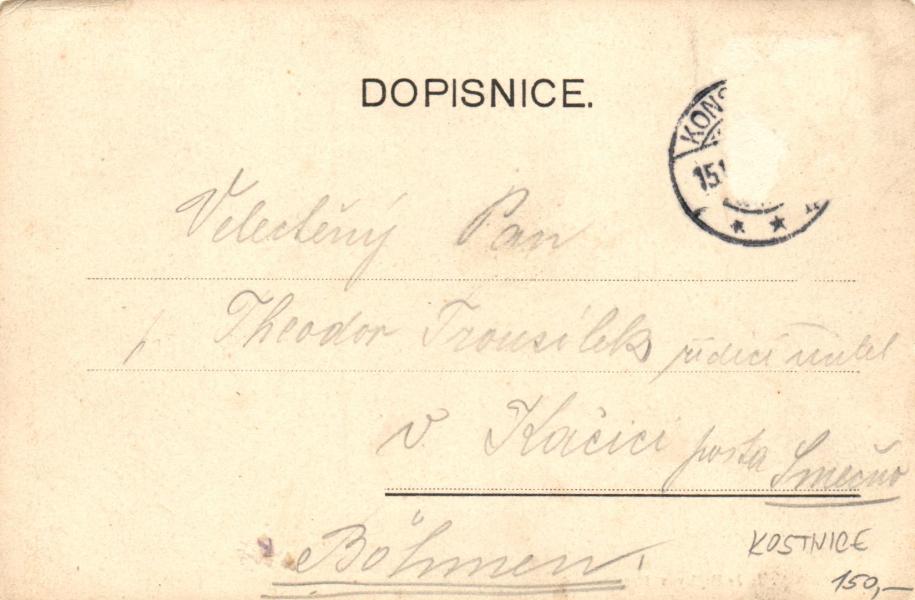 DOPISNICE.
KONS
15.1
Velectěný Pan
Theodor Trousílek řídící učitel
v Kačici pošta Smečno
Böhmen
KOSTNICE
150,—